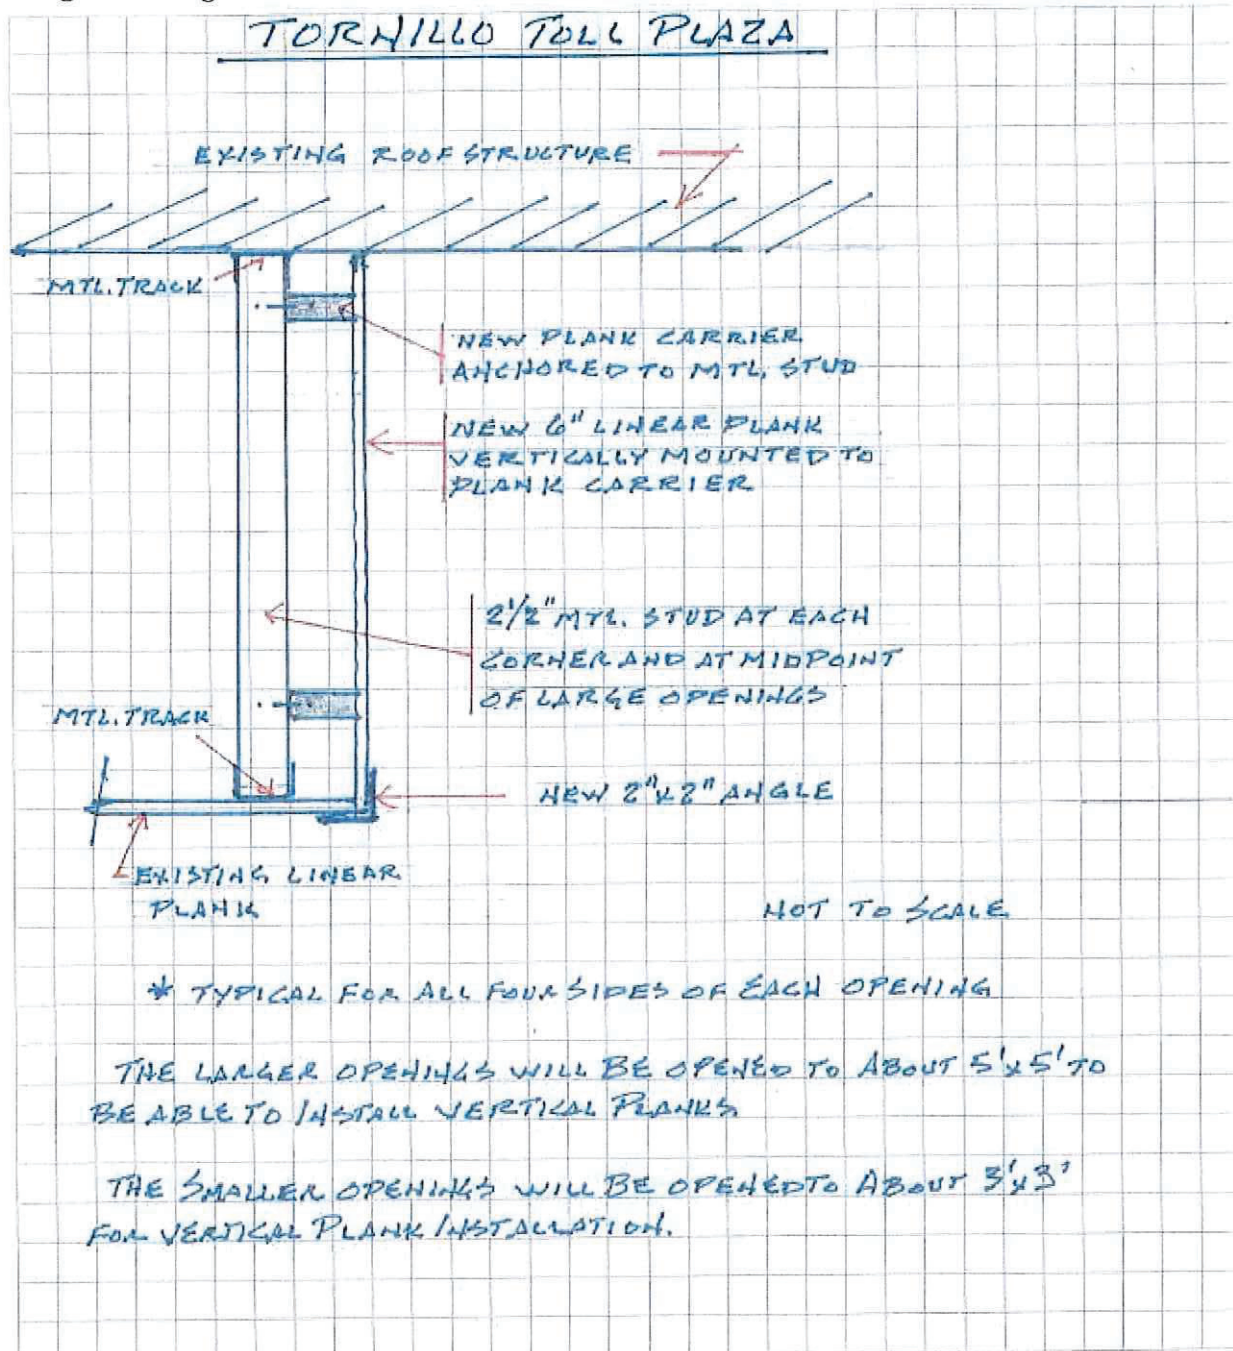 TORNILLO TOLL PLAZA
EXISTING ROOF STRUCTURE
MTL. TRACK
NEW PLANK CARRIER
ANCHORED TO MTL. STUD
NEW 6" LINEAR PLANK
VERTICALLY MOUNTED TO
PLANK CARRIER
2 1/2" MTL. STUD AT EACH
CORNER AND AT MIDPOINT
OF LARGE OPENINGS
MTL. TRACK
NEW 2"x2" ANGLE
EXISTING LINEAR
PLANK
NOT TO SCALE
* TYPICAL FOR ALL FOUR SIDES OF EACH OPENING
THE LARGER OPENINGS WILL BE OPENED TO ABOUT 5'x5' TO
BE ABLE TO INSTALL VERTICAL PLANKS
THE SMALLER OPENINGS WILL BE OPENED TO ABOUT 3'x3'
FOR VERTICAL PLANK INSTALLATION.